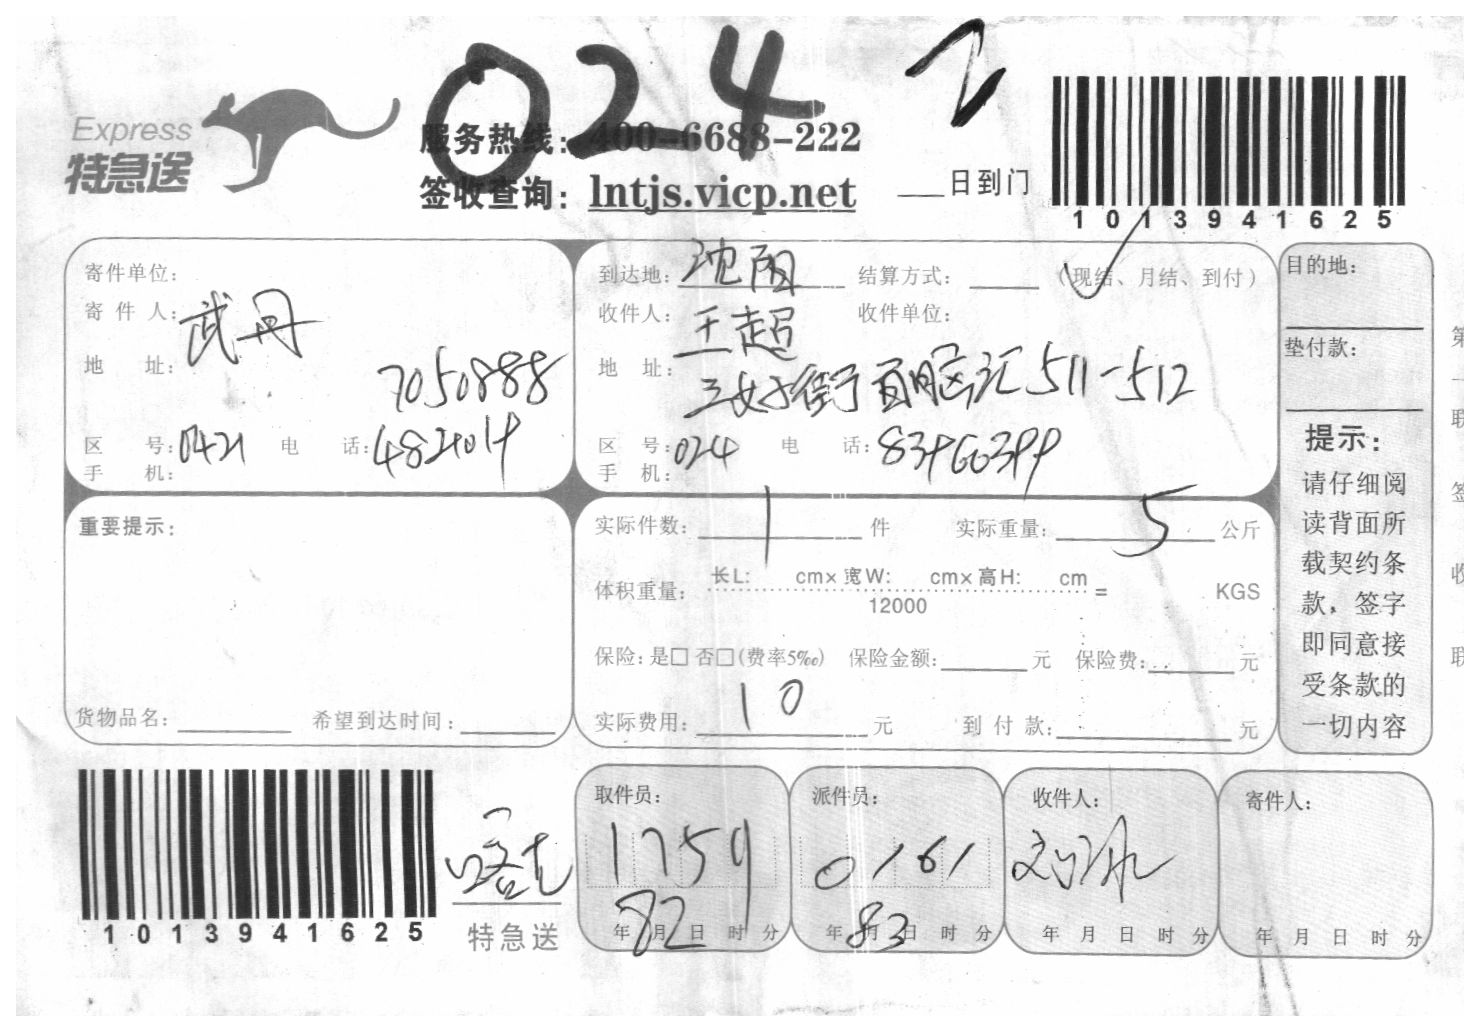 024
2
Express
特急送
服务热线：400-6688-222
签收查询：lntjs.vicp.net
日到门
1013941625
寄件单位：
寄件人：武丹
地址：
7050888
区号：0421 电话：
手机：
到达地：沈阳 结算方式： （现结、月结、到付）
收件人：王超 收件单位：
地址：三好街百脑汇511-512
区号：024 电话：
手机：
目的地：
垫付款：
提示：
请仔细阅
读背面所
载契约条
款，签字
即同意接
受条款的
一切内容
重要提示：
货物品名： 希望到达时间：
实际件数：1 件 实际重量：5 公斤
体积重量： 长L: cm×宽W: cm×高H: cm = KGS
12000
保险：是□ 否□(费率5‰) 保险金额： 元 保险费： 元
实际费用：10 元 到付款： 元
1013941625
特急送
取件员：
1759
82
年 月 日 时 分
派件员：
0161
83
年 月 日 时 分
收件人：
年 月 日 时 分
寄件人：
年 月 日 时 分
第
一
联
签
收
联